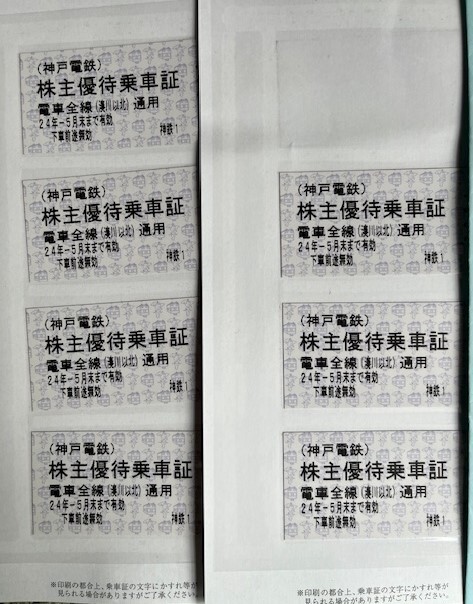 (神戸電鉄)
株主優待乗車証
電車全線(湊川以北)通用
24年-5月末まで有効
下車前途無効
神鉄1
(神戸電鉄)
株主優待乗車証
電車全線(湊川以北)通用
24年-5月末まで有効
下車前途無効
神鉄1
(神戸電鉄)
株主優待乗車証
電車全線(湊川以北)通用
24年-5月末まで有効
下車前途無効
神鉄1
(神戸電鉄)
株主優待乗車証
電車全線(湊川以北)通用
24年-5月末まで有効
下車前途無効
神鉄1
※印刷の都合上、乗車証の文字にかすれ等が
見られる場合がありますがご了承ください
(神戸電鉄)
株主優待乗車証
電車全線(湊川以北)通用
24年-5月末まで有効
下車前途無効
神鉄1
(神戸電鉄)
株主優待乗車証
電車全線(湊川以北)通用
24年-5月末まで有効
下車前途無効
神鉄1
(神戸電鉄)
株主優待乗車証
電車全線(湊川以北)通用
24年-5月末まで有効
下車前途無効
神鉄1
※印刷の都合上、乗車証の文字にかすれ等が
見られる場合がありますがご了承ください。